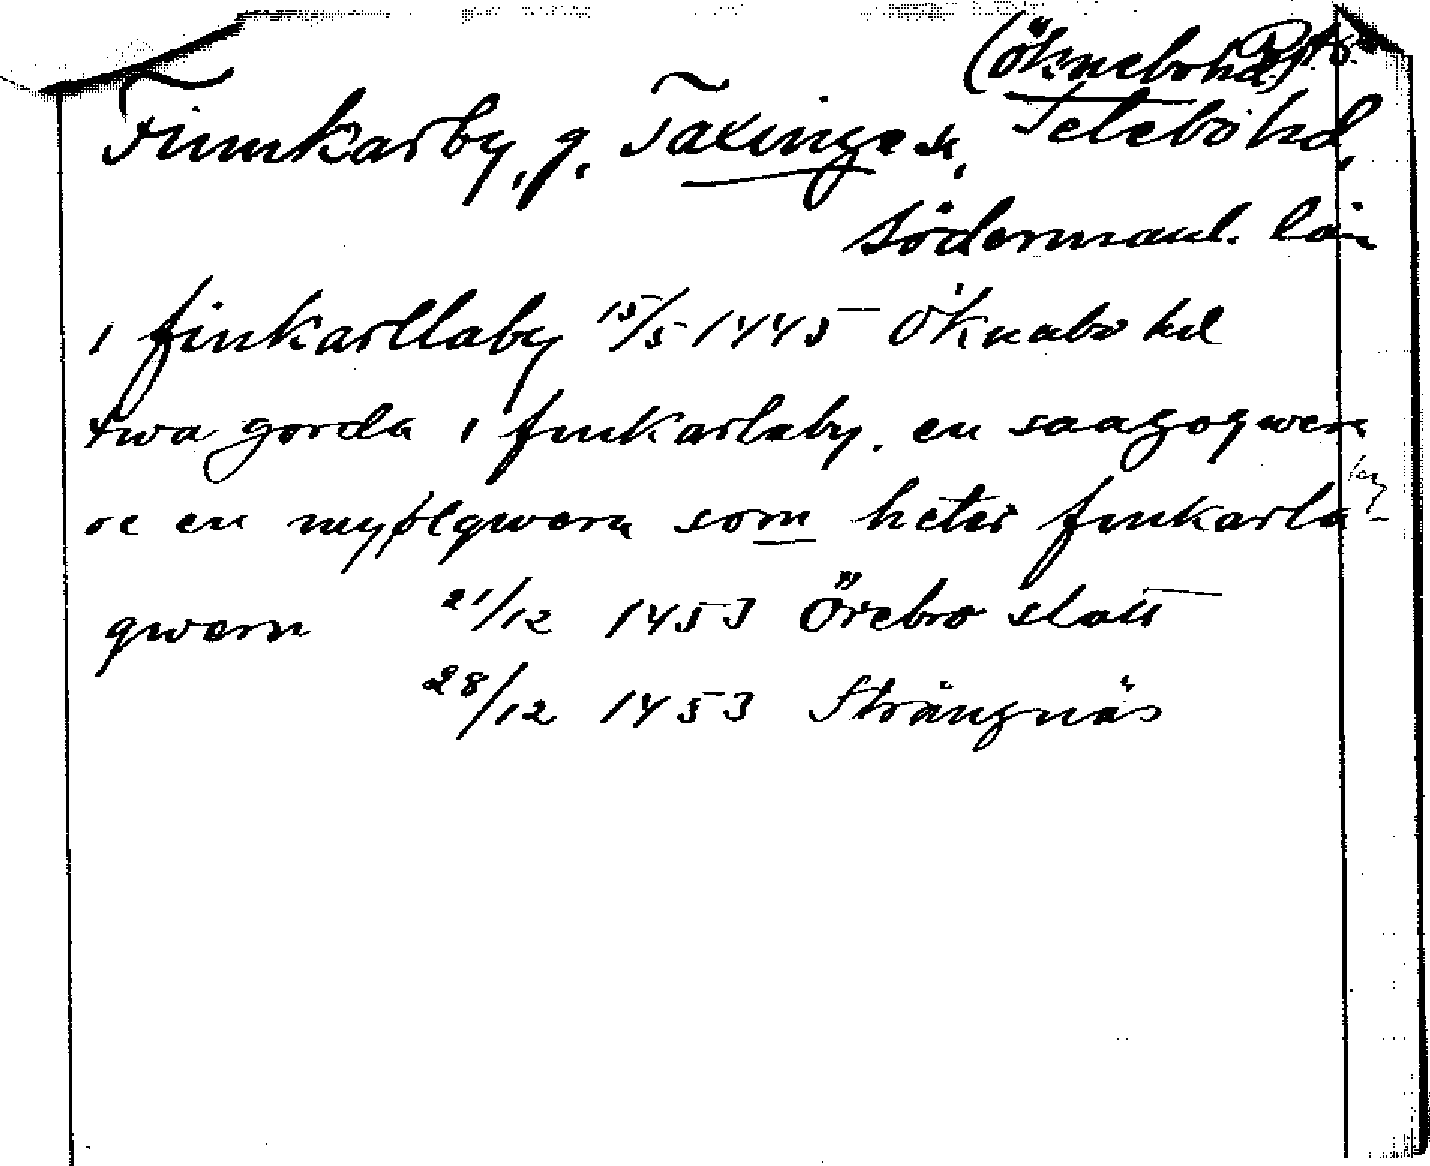 (Öknebo hd)
Finnkarby, g. Taxinge sn, Selebo hd,
Södermanl. län
i finkarllaby 15/5 1445 Öknabo hd
twa gorda i finkarlaby, en saagogwern
oc en myølqwern som heter finkarla-
qwern 21/12 1453 Örebro slott
28/12 1453 Strängnäs